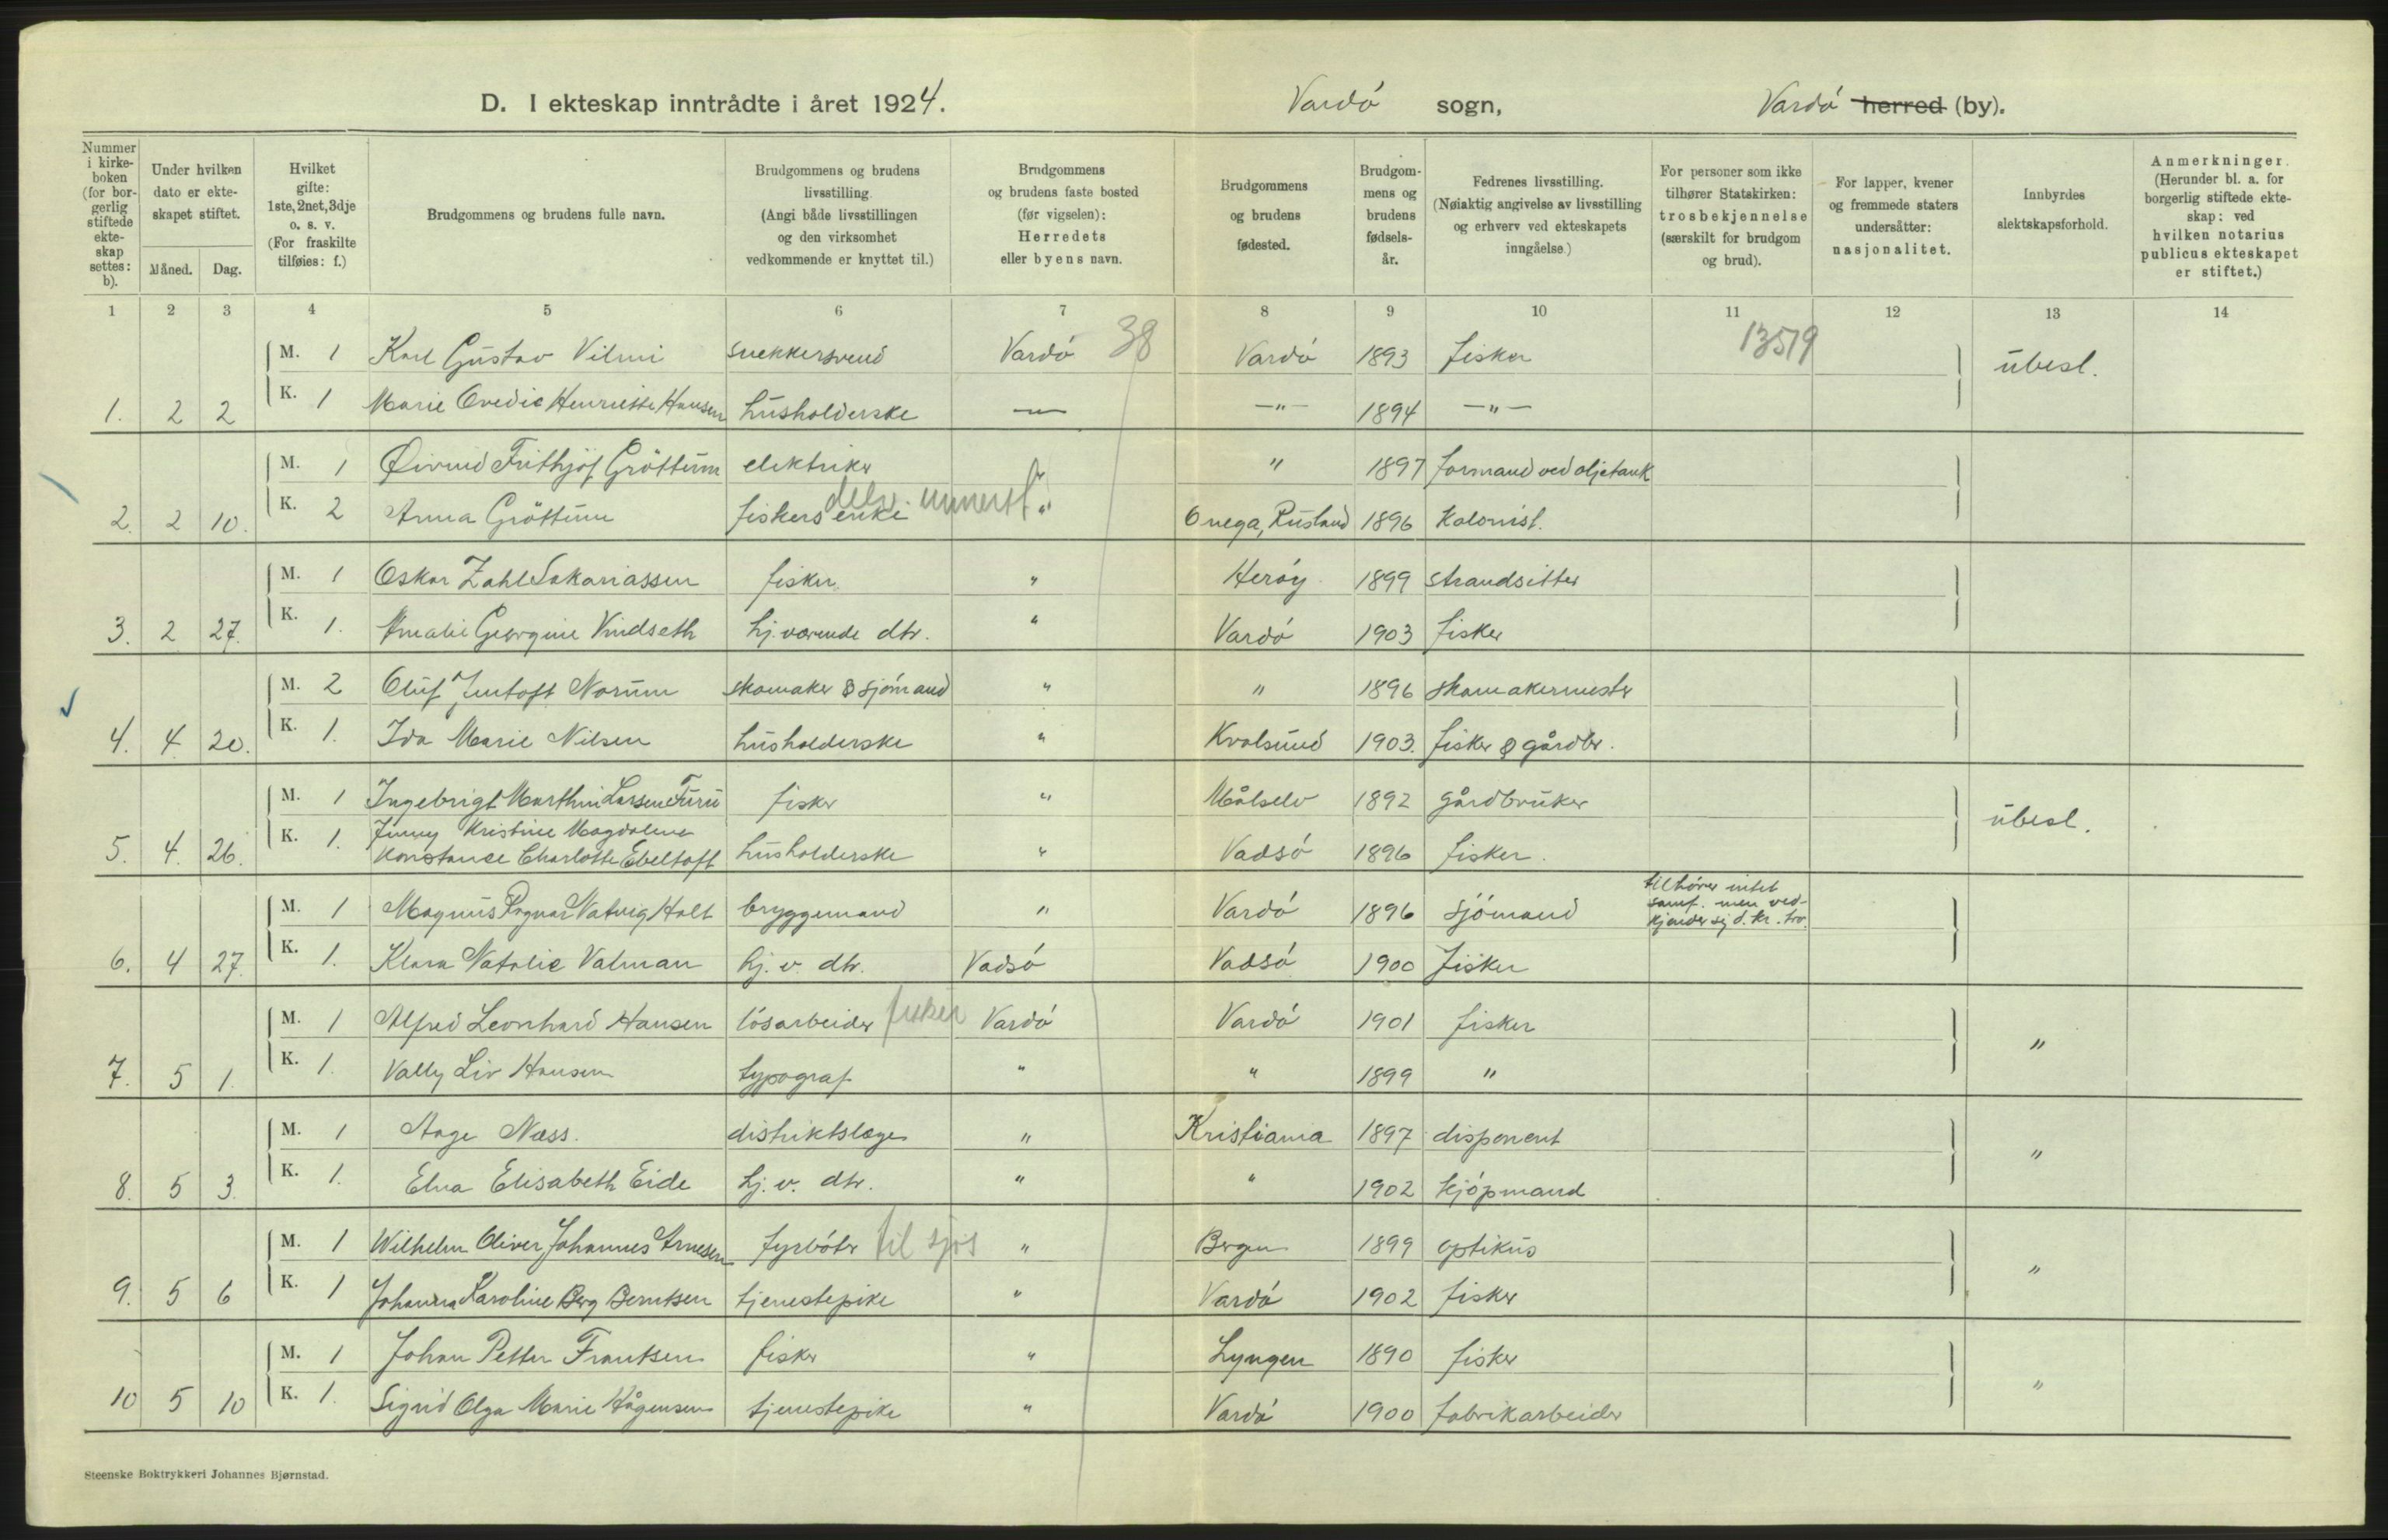 D. I ekteskap inntrådte i året 1924. Vardö sogn, Vardö herred (by).
Nummer i kirke-boken (for bor-gerlig stiftede ekte-skap settes: b).
Under hvilken dato er ekte-skapet stiftet.
Måned. Dag.
Hvilket gifte: 1ste, 2net, 3dje o. s. v. (For fraskilte tilføies: f.)
Brudgommens og brudens fulle navn.
Brudgommens og brudens livsstilling. (Angi både livsstillingen og den virksomhet vedkommende er knyttet til.)
Brudgommens og brudens faste bosted (før vigselen): Herredets eller byens navn.
Brudgommens og brudens fødested.
Brudgom-mens og brudens fødsels-år.
Fedrenes livsstilling. (Nøiaktig angivelse av livsstilling og erhverv ved ekteskapets inngåelse.)
For personer som ikke tilhører Statskirken: trosbekjennelse (særskilt for brudgom og brud).
For lapper, kvener og fremmede staters undersåtter: nasjonalitet.
Innbyrdes slektskapsforhold.
Anmerkninger. (Herunder bl. a. for borgerlig stiftede ekte-skap: ved hvilken notarius publicus ekteskapet er stiftet.)
1 2 3 4 5 6 7 8 9 10 11 12 13 14
M. 1 Karl Gustav Vilmi snekkersvend Vardö 38 Vardö 1893 fisker 13519 ubesl.
1. 2 2 K. 1 Marie Ovedie Henriette Hansen husholderske — —"— 1894 —"—
M. 1 Øivind Frithjof Gröttum elektriker " " 1897 formand ved oljetank
2. 2 10. K. 2 Anna Gröttum fiskers enke " Onega, Rusland 1896 Kolonist.
M. 1 Oskar Zahl Sakariassen fisker " Heröy 1899 strandsitter
3. 2 27. K. 1. Amalie Georgine Vindseth hj. værende dtr. " Vardö 1903 fisker
M. 2 Oluf Jentoft Norum skomaker & sjömand " " 1896 skomakermester
4. 4. 20. K. 1. Ida Marie Nilsen husholderske " Kvalsund 1903. fisker & gårdbr.
M. 1 Ingebrigt Marthin Larsen Furu fisker " Målselv 1892 gårdbruker ubesl.
5. 4. 26. K. 1. Jenny Kristine Magdalene
Konstance Charlotte Ebeltoft husholderske " Vadsö 1896 fisker.
M. 1 Magnus Ragnar Natvig Holt bryggemand " Vardö 1896 sjömand tilhörer intet
samf. men ved-
kjender sig d. kr. tro.
6. 4 27. K. 1. Klara Natalie Valman hj. v. dtr. Vadsö Vadsö 1900 fisker
M. 1 Alfred Leonhard Hansen lösarbeider fisker Vardö Vardö 1901 fisker "
7. 5 1. K. 1. Vally Liv Hansen typograf " " 1899 "
M. 1 Aage Næss. distriktslæge " Kristiania 1897 disponent "
8. 5 3. K. 1. Elna Elisabeth Eide hj. v. dtr. " " 1902 kjöpmand
M. 1 Wilhelm Oliver Johannes Arnesen fyrböter til sjøs " Bergen 1899 optikus "
9. 5 6 K. 1 Johanna Karoline Berg Berntsen tjenestepike " Vardö 1902 fisker
M. 1 Johan Petter Frantsen fisker " Lyngen 1890 fisker "
10 5 10 K. 1. Sigrid Olga Marie Hågensen tjenestepike " Vardö 1900 fabrikarbeider
Steenske Boktrykkeri Johannes Bjørnstad.